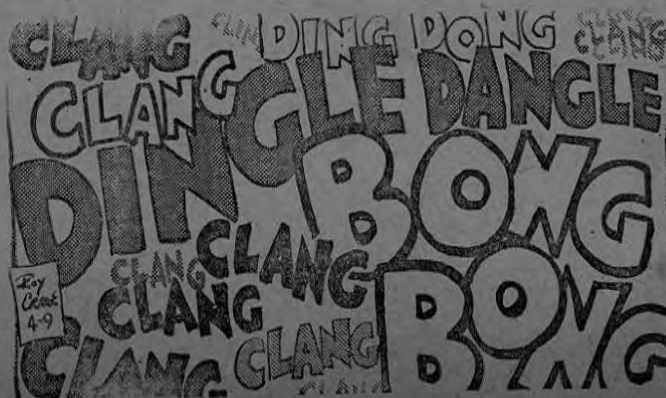 CLANG CLING DING DONG CLANG
CLANG
CLANG DINGLE DANGLE
BONG
CLANG
CLANG
CLANG
BONG
Roy
Crane
4-9
CLANG CLANG
CLANG